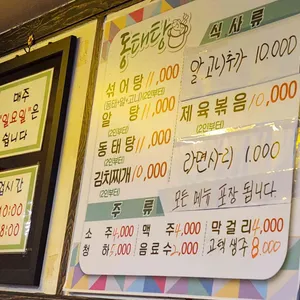 동태탕
식사류
섞어탕 11,000
(동태+알+고니)(2인부터)
알탕 11,000
(2인부터)
동태탕 11,000
(2인부터)
김치찌개 10,000
(2인부터)
알고니추가 10.000
제육볶음 10,000
(2인부터)
라면사리 1.000
모든 메뉴 포장 됩니다
주류
소주 4,000 맥주 4,000 막걸리 4,000
청하 5,000 음료수 2,000 고택생주 8.000
매주
"일요일"은
쉽니다
업시간
10:00
8:00